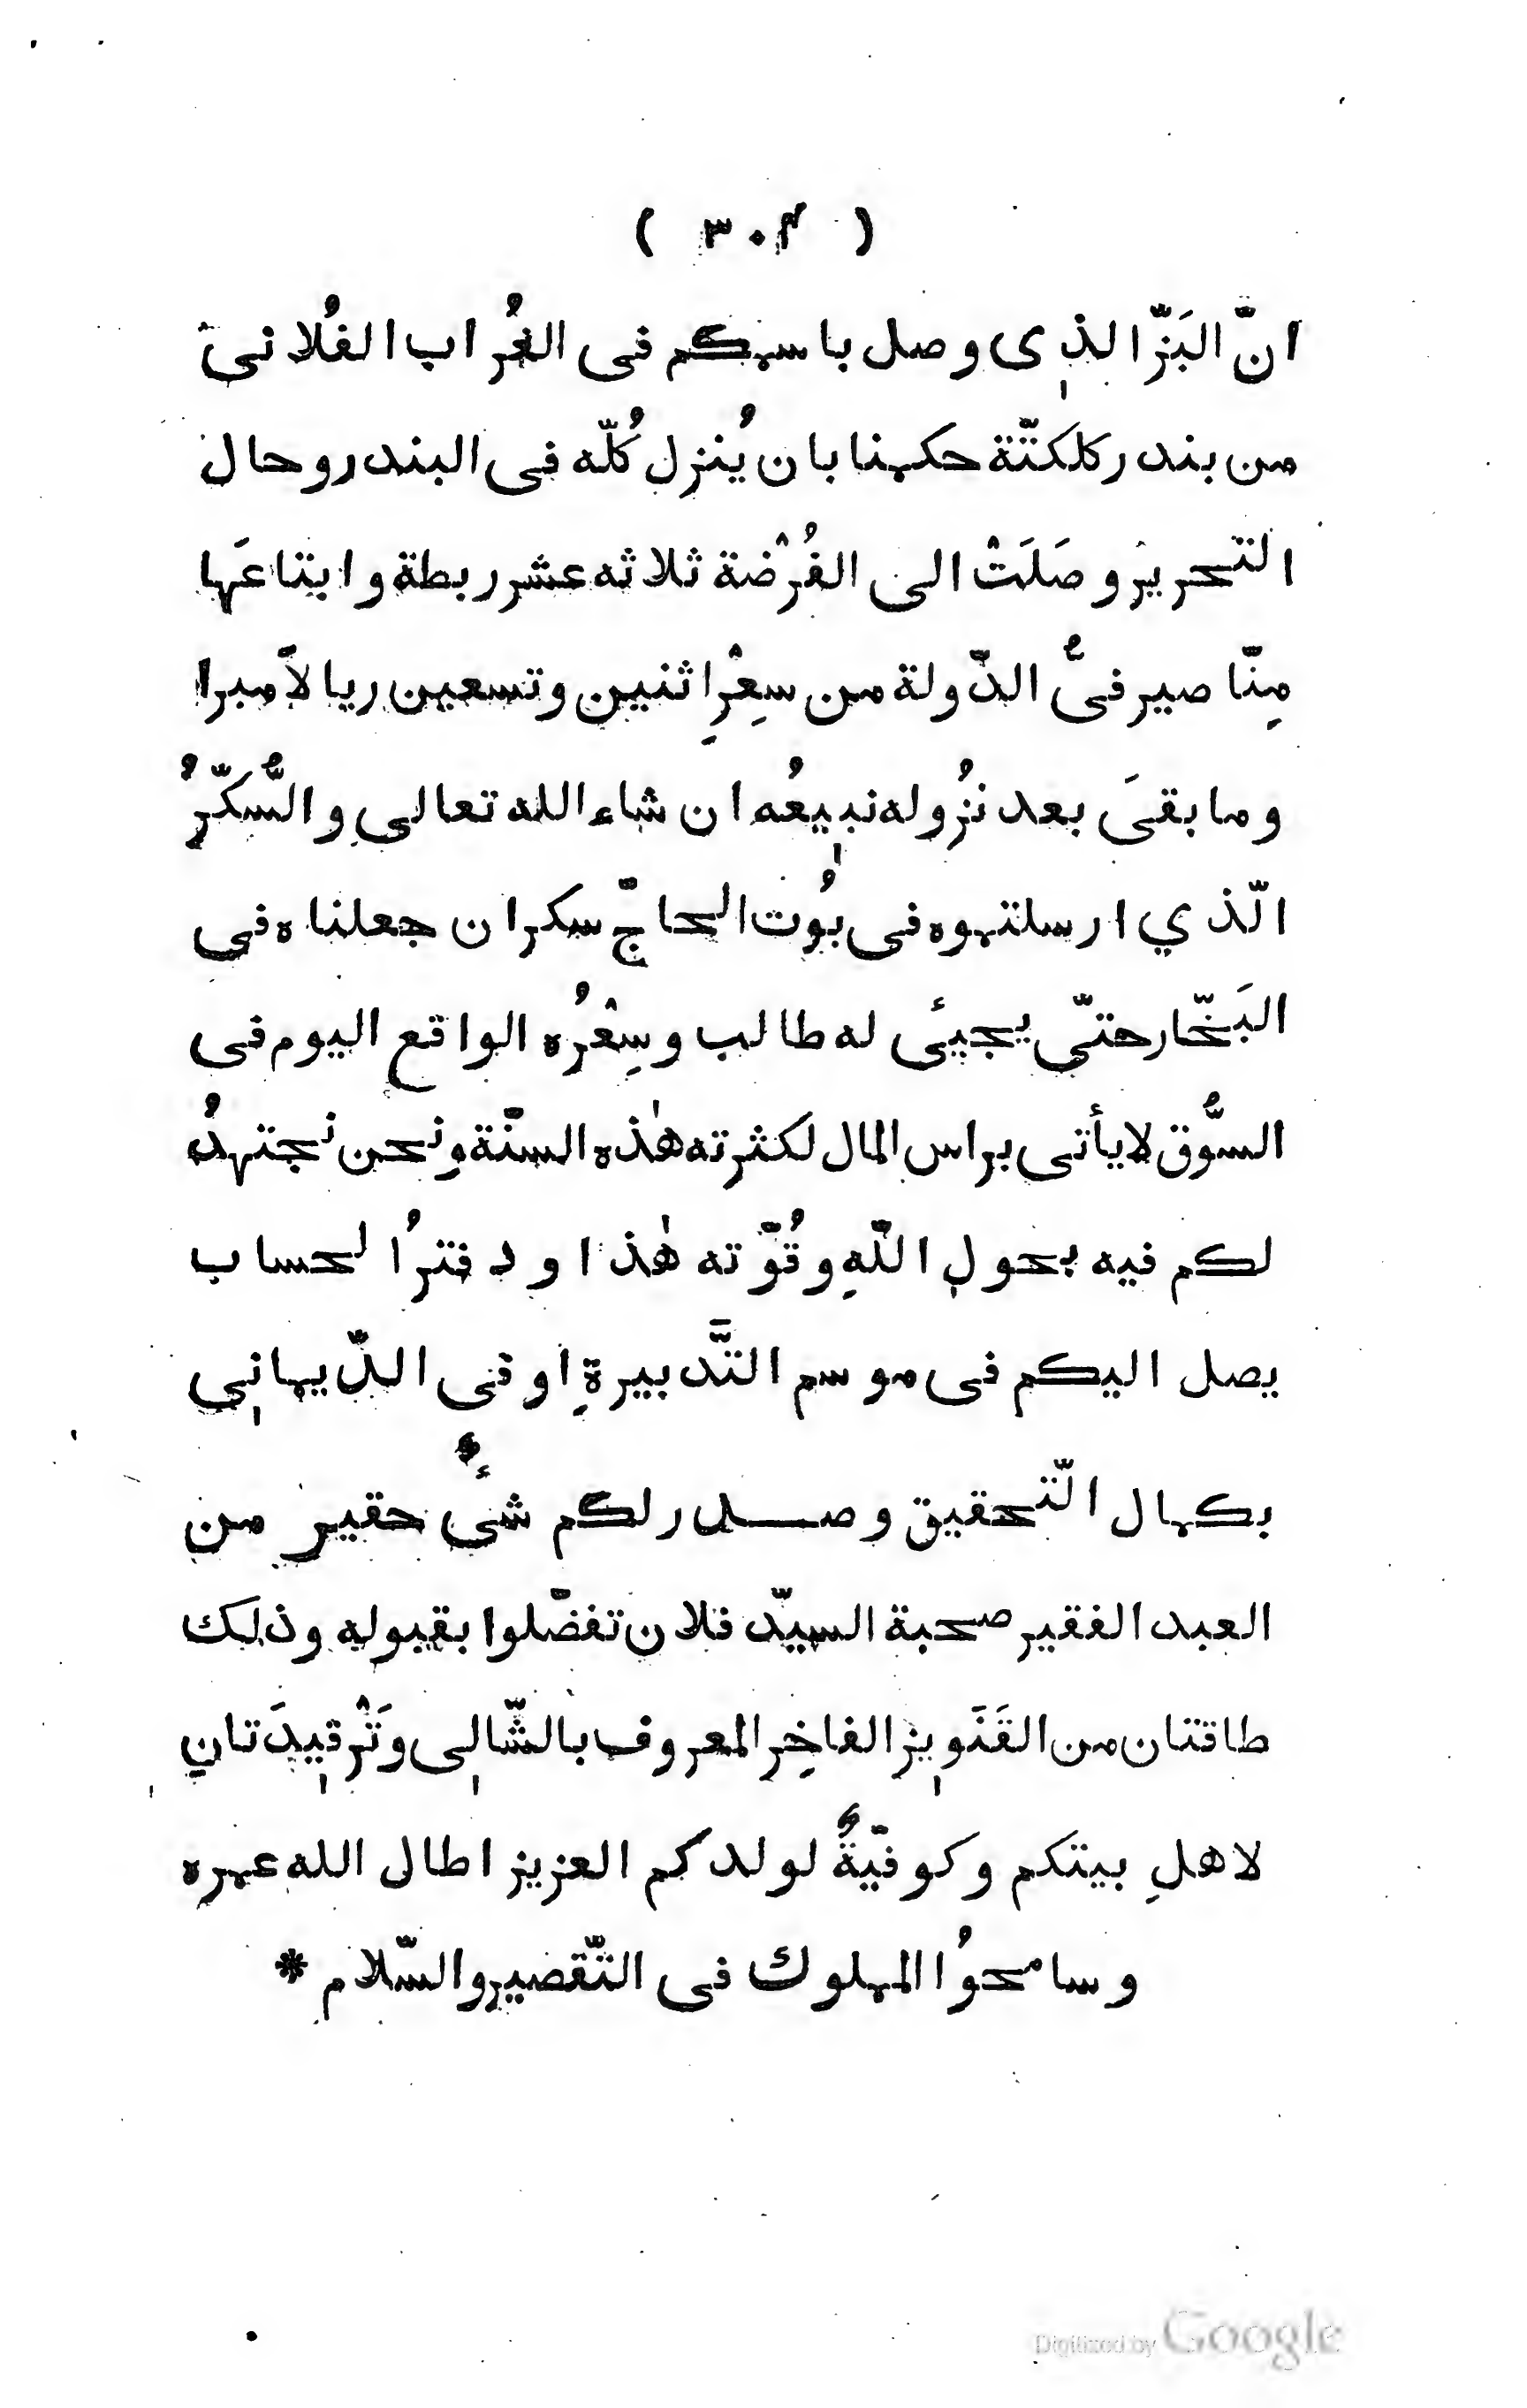 ( ٣٠٤ )
انّ البَزّ الذى وصل باسمكم فى الغُراب الفُلانى
من بندر كلكتّة حكمنا بان يُنزل كُلّه فى البندر وحال
التحرير وصَلَتْ الى الفُرْضة ثلاثه عشر ربطة وابتاعَها
مِنّا صيرفىُّ الدّولة من سِعْرِ اثنين وتسعين ريالاً مبرا
وما بقىَ بعد نُزوله نبيعُه ان شاء الله تعالى والسُّكّرُ
الّذي ارسلتموه فى بُوت الحاجّ سكران جعلناه في
البَخّار حتّى يجيئَ له طالب وسِعْرُه الواقع اليوم فى
السُّوق لا يأتى براس المال لكثرته هٰذه السنّة ونحن نجتهدُ
لكم فيه بحول اللّهِ وقُوّته هٰذا ودفترُ الحساب
يصل اليكم فى موسم التَّدبيرةِ او فى الدّيمانى
بكمال التّحقيق وصدر لكم شئٌ حقير من
العبد الفقير صحبة السيّد فلان تفضّلوا بقبوله وذلك
طاقتان من القَنَويز الفاخِر المعروف بالشّالى وَتَرْقيدَتانِ
لاهلِ بيتكم وكوفيّةٌ لولدكم العزيز اطال الله عمره
وسامحُوا المملوك فى التّقصير والسّلام *
Digitized by Google